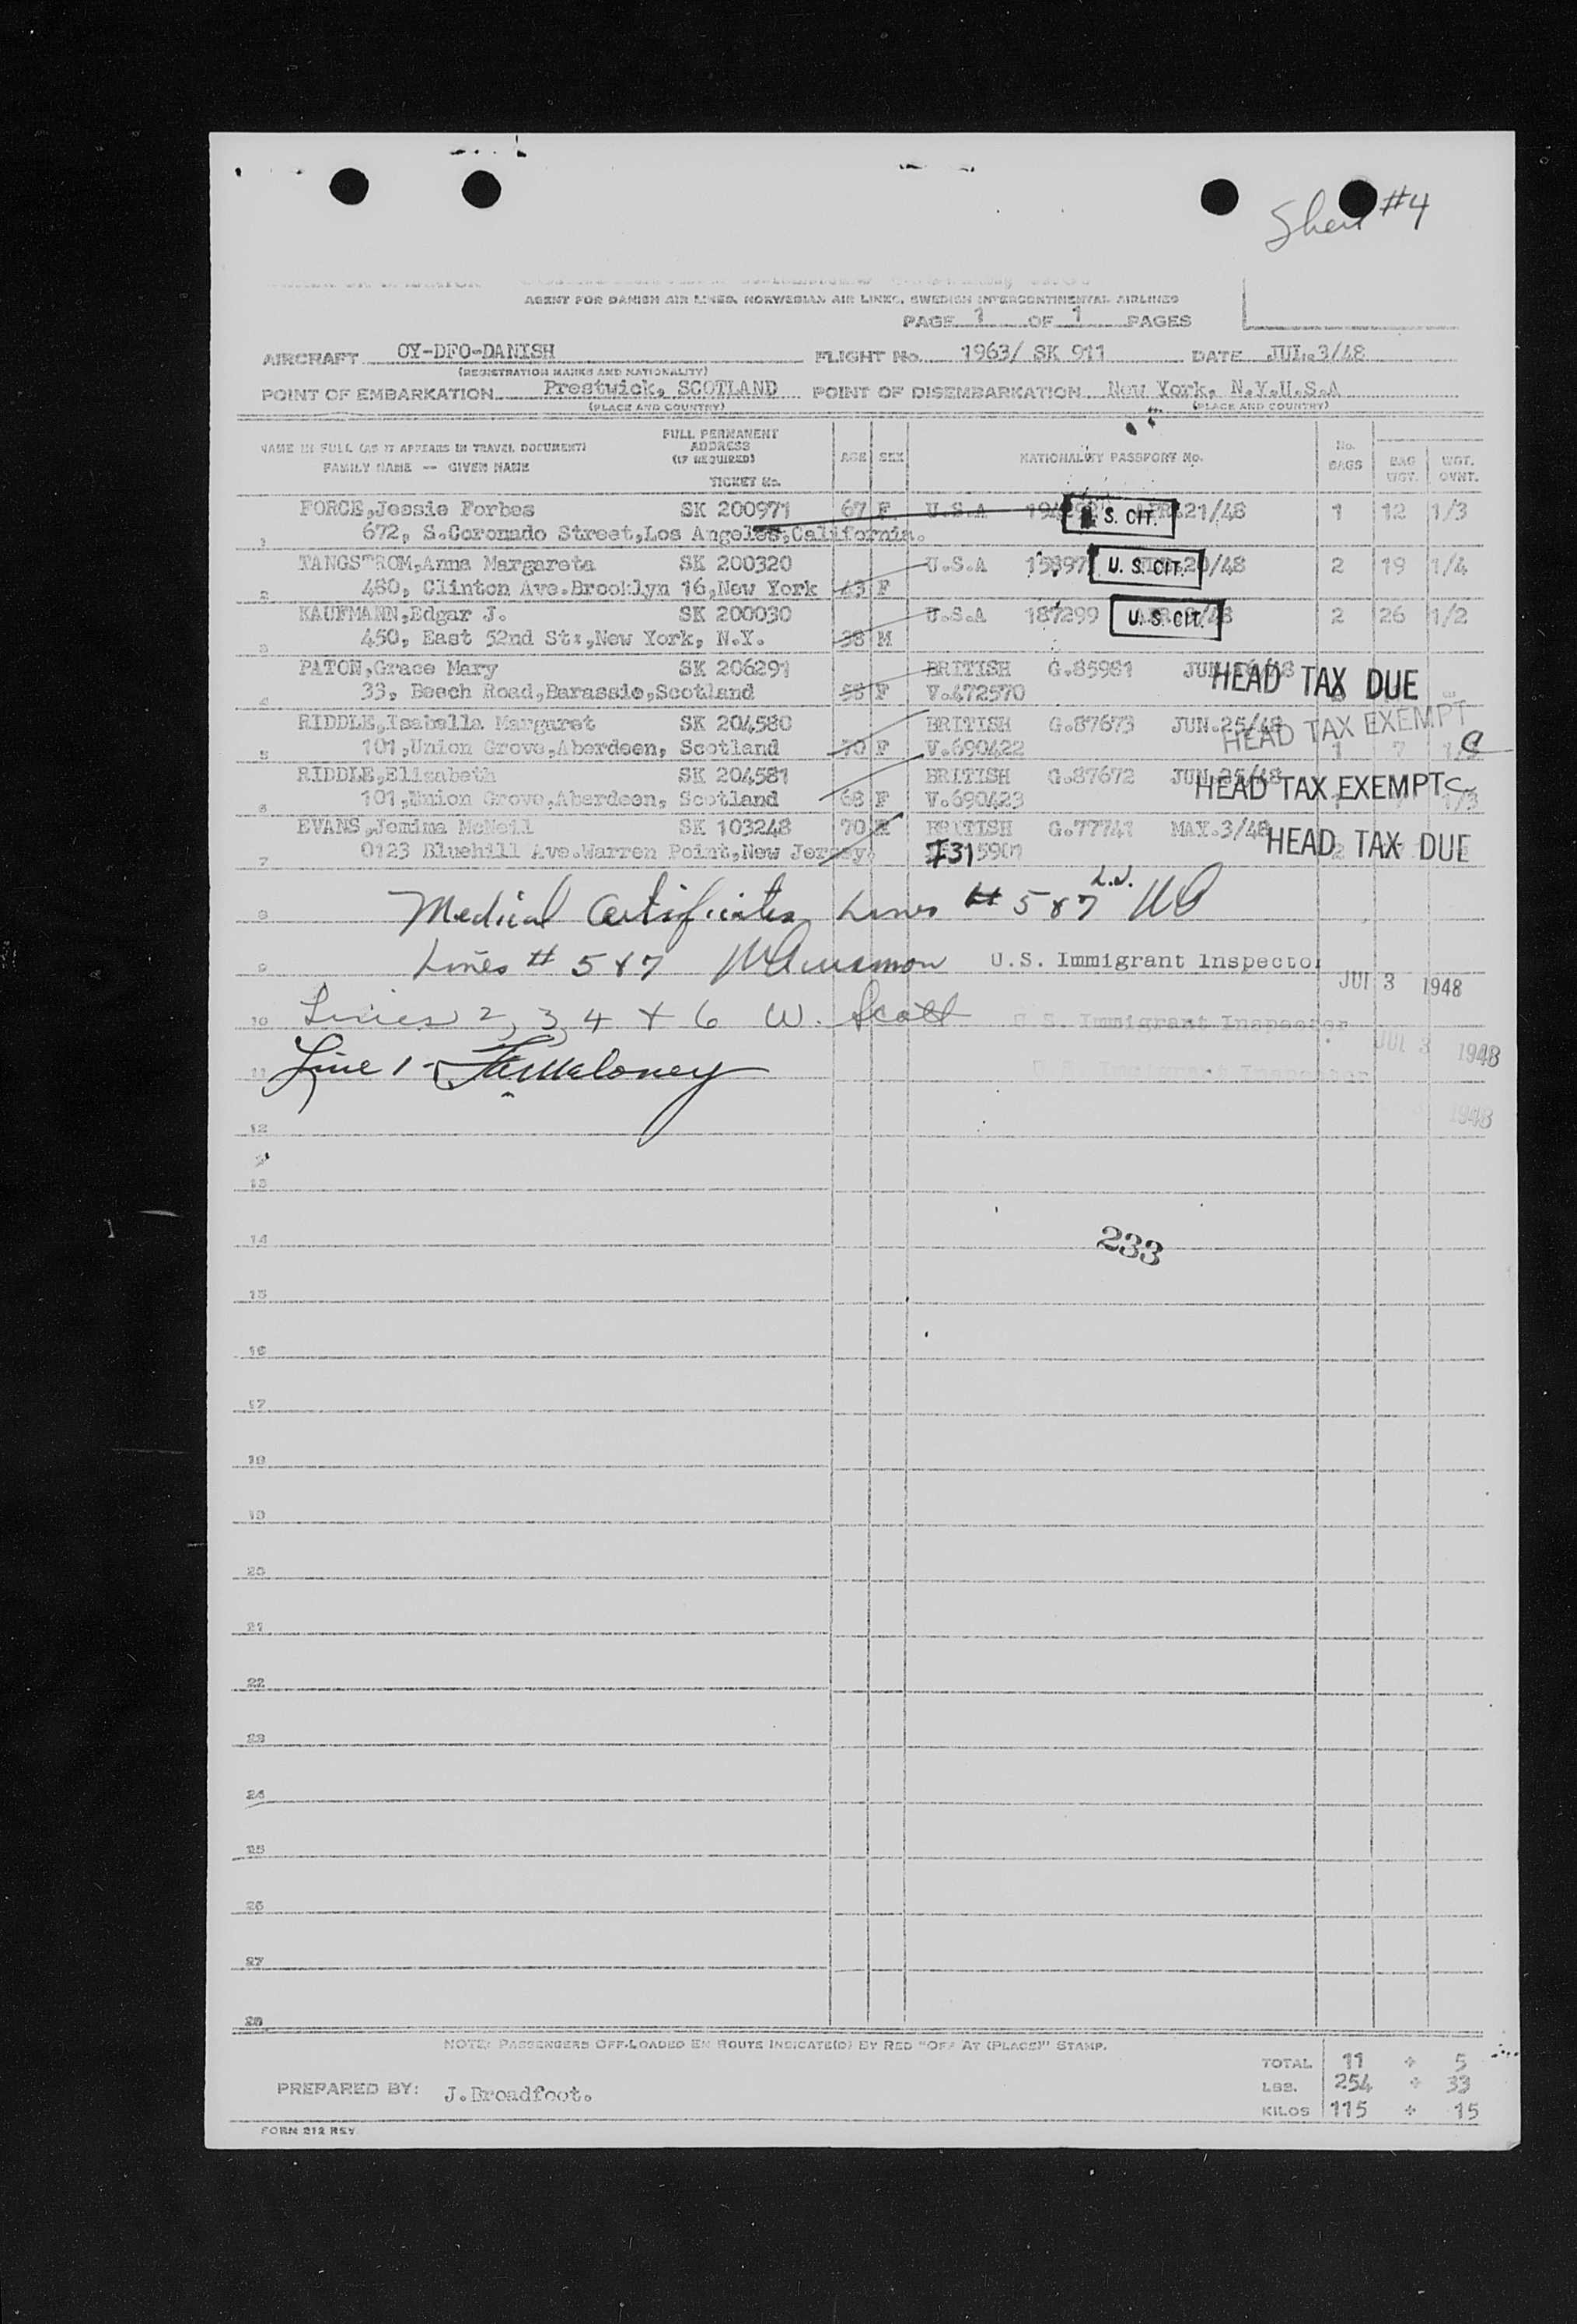 Sheet #4
AGENT FOR DANISH AIR LINES, NORWEGIAN AIR LINES, SWEDISH INTERCONTINENTAL AIRLINES
PAGE 1 OF 1 PAGES
AIRCRAFT OY-DFO-DANISH FLIGHT No. 1963/ SK 911 DATE JUL.3/48
(REGISTRATION MARKS AND NATIONALITY)
POINT OF EMBARKATION Prestwick, SCOTLAND POINT OF DISEMBARKATION New York, N.Y.U.S.A
(PLACE AND COUNTRY) (PLACE AND COUNTRY)
NAME IN FULL (AS IT APPEARS IN TRAVEL DOCUMENT) FULL PERMANENT ADDRESS (IF REQUIRED) AGE SEX NATIONALITY PASSPORT No. No. BAGS BAG WGT. WGT. OVHT.
FAMILY NAME -- GIVEN NAME TICKET No.
FORCE,Jessie Forbes SK 200971 67 F U.S.A U.S. CIT. 21/48 1 12 1/3
1 672, S.Coronado Street,Los Angeles,California.
TANGSTROM,Anna Margareta SK 200320 U.S.A U. S. CIT. 20/48 2 19 1/4
2 480, Clinton Ave.Brooklyn 16,New York 43 F
KAUFMANN,Edgar J. SK 200030 U.S.A 187299 U. S. CIT. 2 26 1/2
3 450, East 52nd St:,New York, N.Y. 38 M
PATON,Grace Mary SK 206291 BRITISH G.85981 HEAD TAX DUE
4 33, Beech Road,Barassie,Scotland 58 F V.472570
RIDDLE,Isabella Margaret SK 204580 BRITISH G.87673 JUN.25/48 HEAD TAX EXEMPT
5 101,Union Grove,Aberdeen, Scotland 70 F V.690422 1 7 C
RIDDLE,Elizabeth SK 204581 BRITISH G.87672 JUN.25/48 HEAD TAX EXEMPT C
6 101,Union Grove,Aberdeen, Scotland 68 F V.690423 1/3
EVANS,Jemima McNeil SK 103248 70 BRITISH G.77741 MAY.3/48 HEAD TAX DUE
7 0123 Bluehill Ave.Warren Point,New Jersey. 7315901
8 Medical Certificates Lines # 5 & 7
9 Lines # 5 & 7 U.S. Immigrant Inspector JUL 3 1948
10 Lines 2, 3, 4 + 6 W. Scott U.S. Immigrant Inspector JUL 3 1948
11 Line 1 - Maloney U.S. Immigrant Inspector 3 1948
12
13
14 233
15
16
17
18
19
20
21
22
23
24
25
26
27
28
NOTE: PASSENGERS OFF-LOADED EN ROUTE INDICATE(D) BY RED "OFF AT (PLACE)" STAMP.
TOTAL 11 + 5
PREPARED BY: J.Broadfoot. LBS. 254 + 33
KILOS 115 + 15
FORM 212 REV